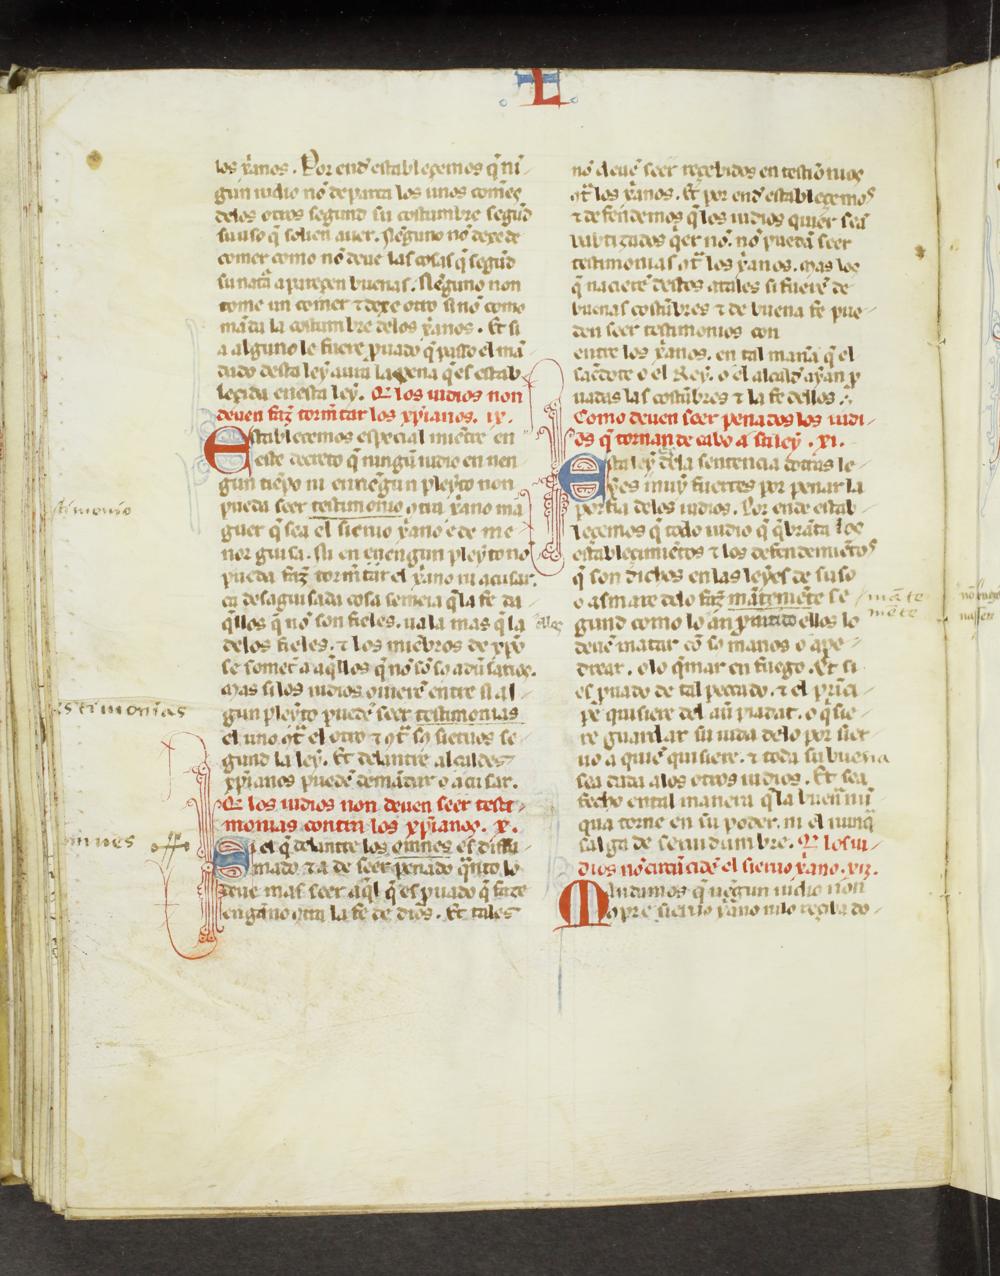 L
los xp̃anos. Por end establecemos q̃ nin
gun iudio nõ departa los unos comeres
delos otros segund su costumbre segũd
su uso q̃ solien auer. Nĩguno nõ dexe de
comer como nõ deue las cosas q̃ segũd
su natã aparecen buenas. Nĩguno non
tome un comer ⁊ dexe otro si nõ como
mãda la costumbre delos xp̃anos. Et si
a alguno le fuere p̃uado q̃ passo el mã
dado desta ley aura la pena q̃ es estab
lecida en esta ley. Q̃ los iudios non
deuen faz̃ tormẽtar los xp̃ianos. ix.
Establecemos especial miẽtre en
este decreto q̃ ningũ iudio en nen
gun tiẽpo ni en nẽgun pleyto non
pueda seer testimonio ctra xp̃ano ma
guer q̃ sea el sieruo xp̃ano e de me
nor guisa. Ni en nẽgun pleyto no
pueda faz̃ tormẽtar el xp̃ano ni acusar.
ca desaguisada cosa semeia q̃ la fe da
q̃llos q̃ nõ son fieles. uala mas q̃ la
delos fieles. ⁊ los miẽbros de xp̃o
se someter a aq̃llos q̃ nõ sõ so aduersarios.
Mas si los iudios ouierẽ entre si al
gun pleyto puedẽ seer testimonias
el uno ct̃ el otro ⁊ ct̃ sy sieruos se
gund la ley. Et delantre alcaldes
xp̃ianos puedẽ demãdar o acusar.
Q̃ los iudios non deuen seer testi
monias contra los xp̃ianos. x.
Si el q̃ delantre los omnes es diffa
mado ⁊ a de seer penado q̃nto lo
deue mas seer aq̃l q̃ es p̃uado q̃ faze
engãno ctra la fe de dios. Et tales
nõ deuẽ seer recebidos en testimonios
ct̃ los xp̃anos. Et por end establecemos
⁊ defendemos q̃ los iudios quier seã
babtizados q̃er nõ. nõ puedã seer
testimonias ct̃ los xp̃anos. mas los
q̃ nacierẽ destos atales si fuerẽ de
buenas costũbres ⁊ de buena fe pue
den seer testimonios con
entre los xp̃anos. en tal manã q̃ el
sac̃dote o el Rey. o el alcald ayan p̃
uadas las costũbres ⁊ la fe dellos.
Como deuen seer penados los iudi
os q̃ tornan de cabo a su ley. xi.
Esta ley da la sentencia dotras le
yes muy fuertes por penar la
porfia delos iudios. Por ende estab
lecemos q̃ todo iudio q̃ q̃brãta los
establecimiẽtos ⁊ los defendemiẽtos
q̃ son dichos en las leyes de suso
o asmare delo faz̃ mãtemẽte se
gund como lo an p̃mitido ellos lo
deuẽ matar cõ so manos o ape
drear. o lo q̃mar en fuego. Et si
es p̃uado de tal peccado. ⁊ el prĩci
pe quisiere del auer piadat. o q̃sie
re guardar su uida delo por sier
uo a quiẽ quisiere. ⁊ toda su buena
sea dada alos otros iudios. Et sea
fecho en tal manera q̃ la buena nũ
qua torne en su poder. ni el nunq̃
salga de seruidumbre. Q̃ los iu
dios nõ circũcidẽ el sieruo xp̃ano. xii.
Mandamos q̃ negun iudio non
copre sieruo xp̃ano ni lo reciba do
timonio
stimonias
omnes
mãte
mẽte